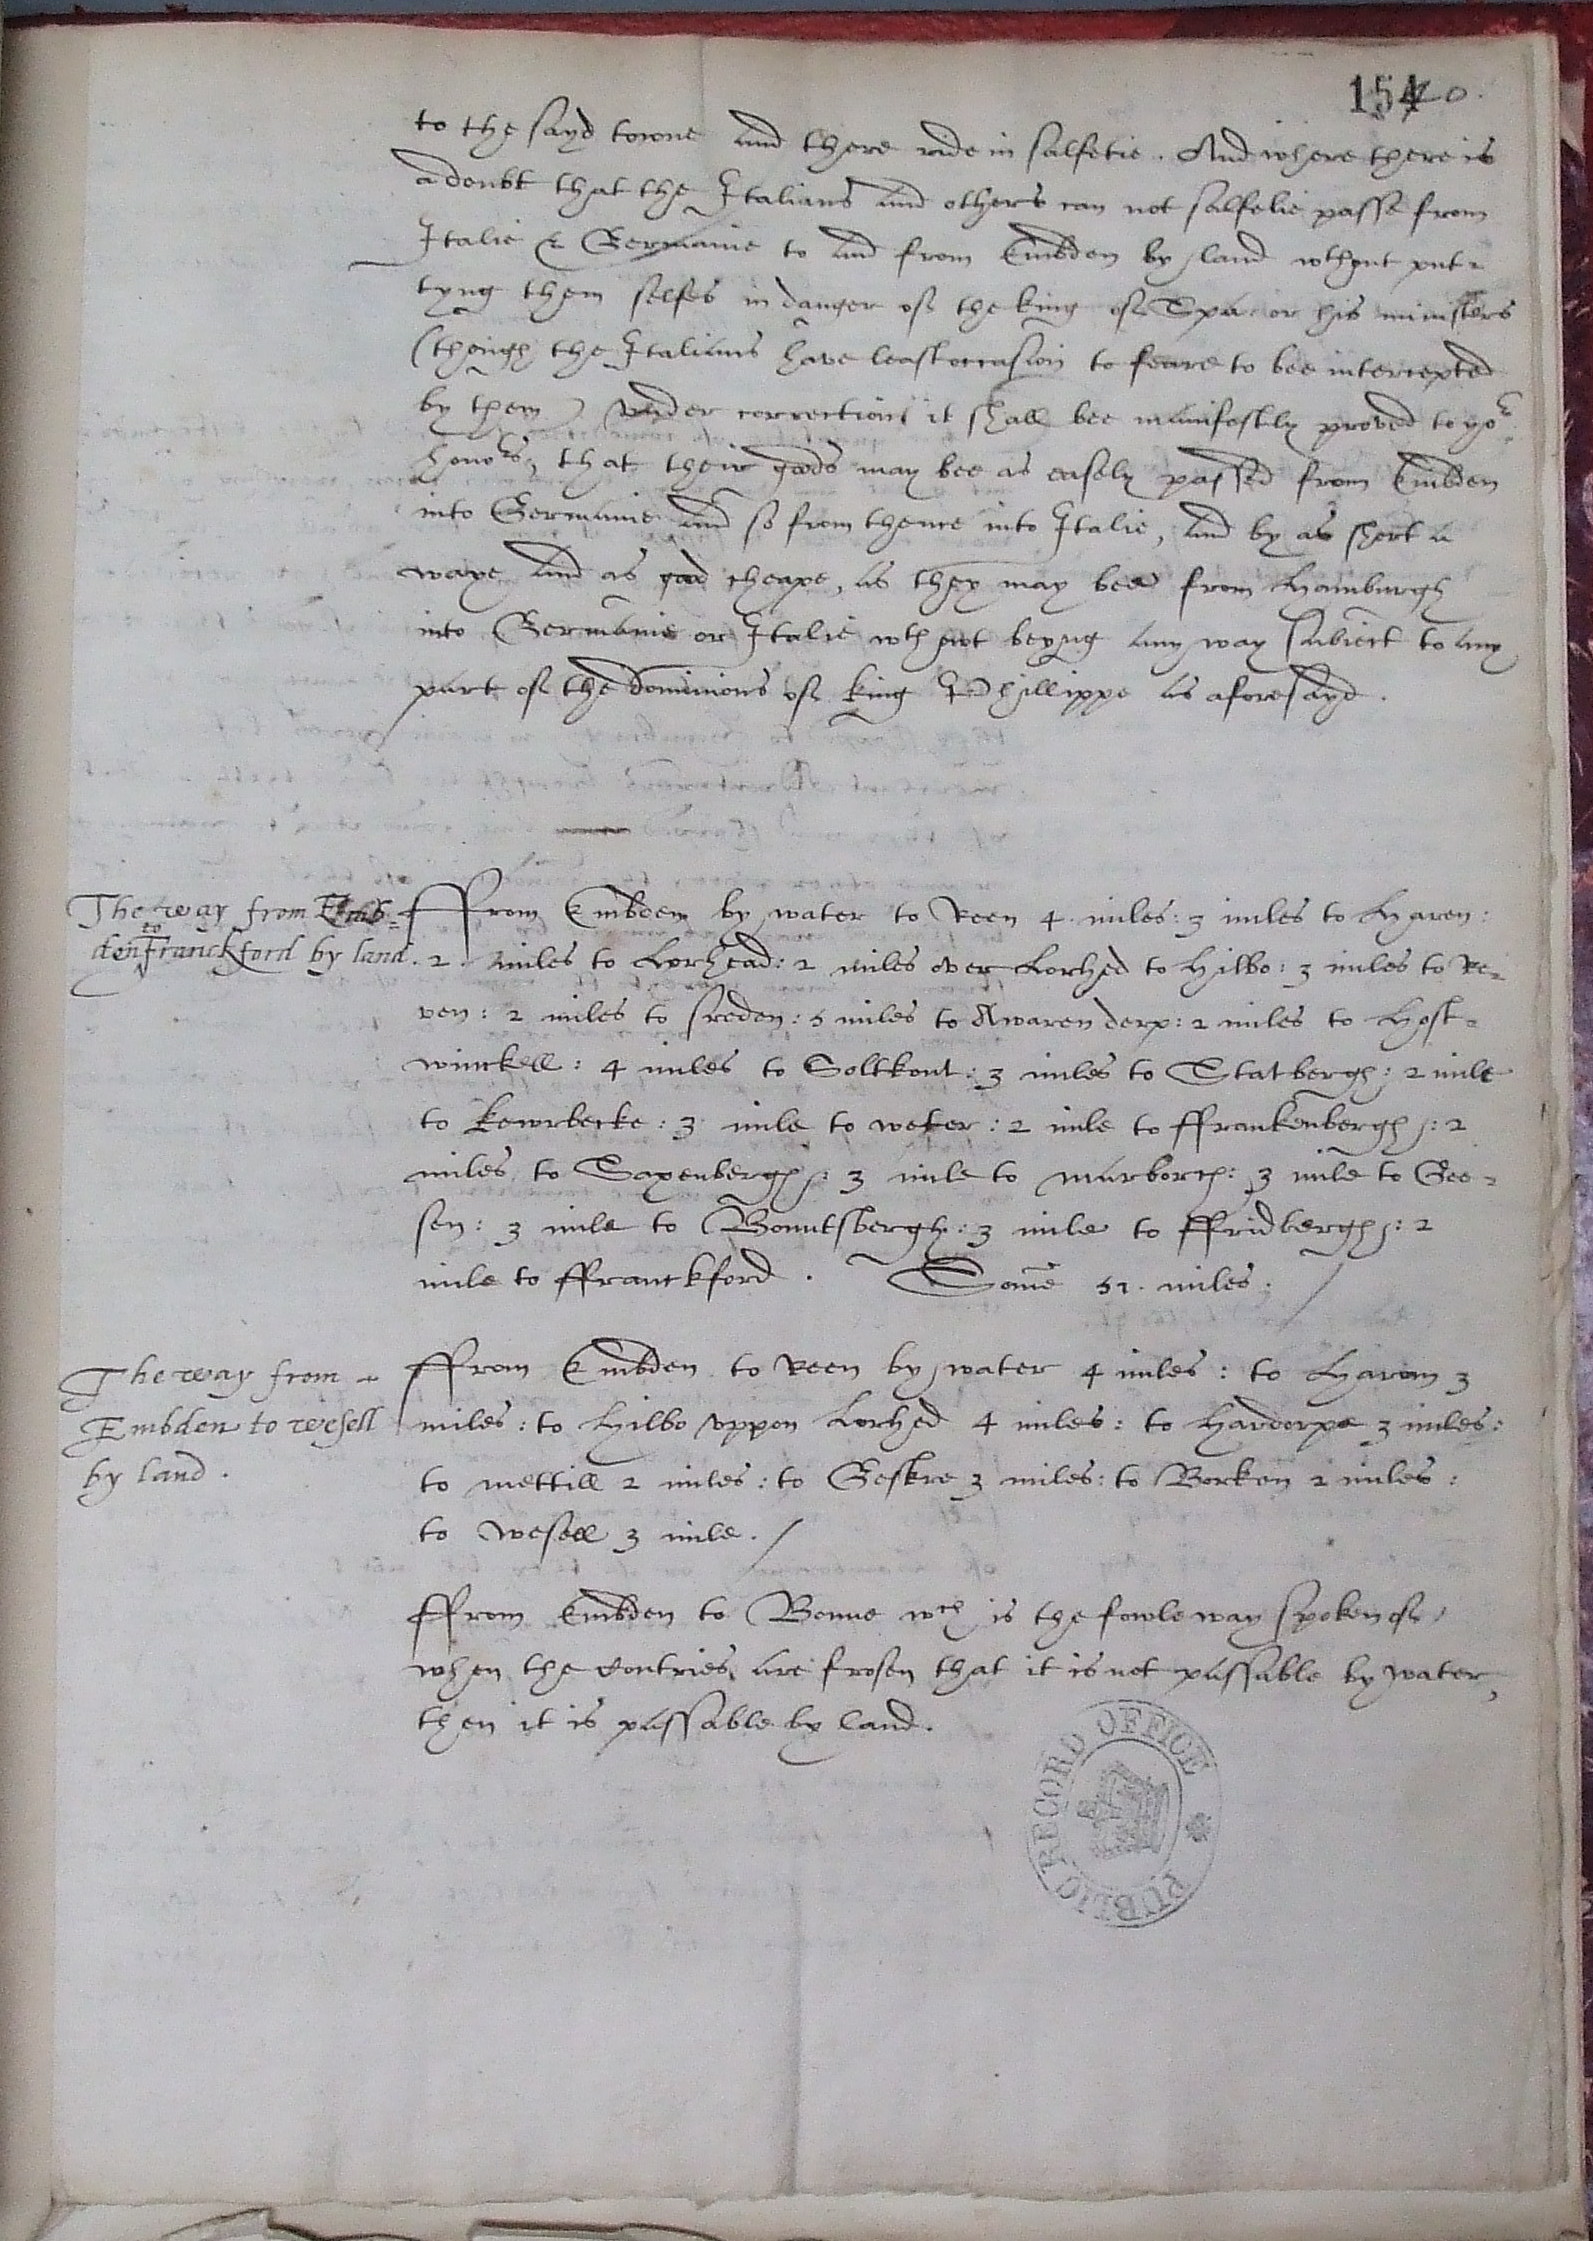 154 40.
to the sayd towne and there ride in salfetie. And where there is
a doubt that the Italians and others can not salfelie passe from
Italie & Germanie to and from Embden by land wthout put=
tyng them selfes in danger of the king of Spa: or his ministers
(though the Italians have least occasion to feare to bee intercepted
by them) Vnder correction it shall bee manifestly proved to yor
honors, that their goods may bee as easely passed from Embden
into Germanie and so from thence into Italie, and by as short a
waye and as good cheape, as they may bee from Hamburgh
into Germanie or Italie wthowt beyng any way subiect to any
part of the dominions of king Phillippe as aforesayd.
The way from Emb=
den to Franckford by land.
ffrom Embden by water to Reen 4. miles: 3 miles to Haren:
2. miles to Lorhead: 2 miles over Lorhed to Hilbo: 3 miles to Re=
ven: 2 miles to sreden: 5 miles to Awarenderp: 2 miles to Host=
winckell: 4 miles to Soltkout: 3 miles to Statbergh: 2 mile
to kewrbecke: 3 mile to weter: 2 mile to ffrankenbergh: 2
miles to Saxenbergh: 3 mile to marborch: 3 mile to Gee=
sen: 3 mile to Boutsbergh: 3 mile to ffridbergh: 2
mile to ffranckford. Some 51. miles./
The way from
Embden to Wesell
by land.
ffrom Embden to Reen by water 4 miles: to Haren 3
miles: to Hilbo vppon Lorhed 4 miles: to Hardorpe 3 miles:
to mettill 2 miles: to Geskre 3 miles: to Borken 2 miles:
to wesell 3 mile./
ffrom Embden to Bonne wch is the fowle way spoken of,
when the contries are frosen that it is not passable by water,
then it is passable by land.
PUBLIC RECORD OFFICE